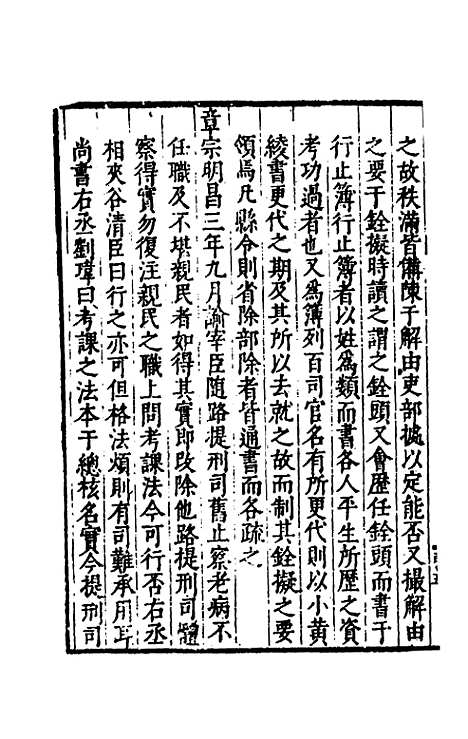 之故秩滿皆備陳于解由吏部據以定能否又撮解由
之要于銓擬時讀之謂之銓頭又會歷任銓頭而書于
行止簿行止簿者以姓爲類而書各人平生所歷之資
考功過者也又爲簿列百司官名有所更代則以小黃
綾書更代之期及其所以去就之故而制其銓擬之要
領焉凡縣令則省除部除者皆通書而各疏之
章宗明昌三年九月諭宰臣随路提刑司舊止察老病不
任職及不堪親民者如得其實即改除他路提刑司體
察得實勿復注親民之職上問考課法今可行否右丞
相夾谷清臣曰行之亦可但格法煩則有司難承用耳
尚書右丞劉瑋曰考課之法本于總核名實今提刑司